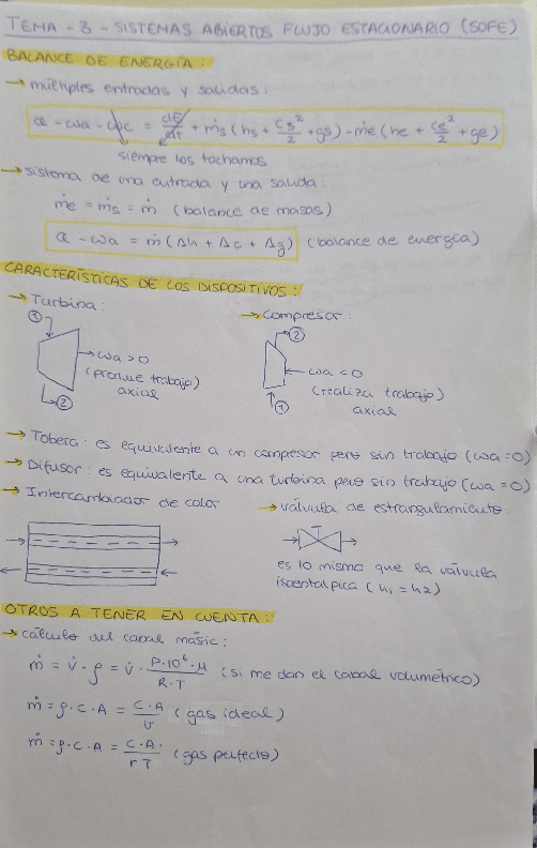 TEMA - 3 - SISTEMAS ABIERTOS FLUJO ESTACIONARIO (SOFE)
BALANCE DE ENERGÍA:
→ múltiples entradas y salidas:
Q - wa - wpc = dE/dt + ṁs (hs + cs²/2 + gs) - ṁe (he + ce²/2 + ge)
siempre los tachamos
→ sistema de una entrada y una salida:
ṁe = ṁs = ṁ (balance de masas)
Q - wa = ṁ (Δh + Δc + Δg) (balance de energía)
CARACTERÍSTICAS DE LOS DISPOSITIVOS:
→ Turbina: → compresor:
① ②
→ wa > 0 ← wa < 0
(produce trabajo) (realiza trabajo)
axial axial
② ①
→ Tobera: es equivalente a un compresor pero sin trabajo (wa = 0)
→ Difusor: es equivalente a una turbina pero sin trabajo (wa = 0)
→ Intercambiador de calor → válvula de estrangulamiento:
es lo mismo que la válvula
isoentalpica (h1 = h2)
OTROS A TENER EN CUENTA:
→ cálculo del cabal màsic:
ṁ = v̇ · ρ = v̇ · P·10⁶·μ / R·T (si me dan el cabal volumétrico)
ṁ = ρ·c·A = c·A / v (gas ideal)
ṁ = ρ·c·A = c·A· / rT (gas perfecto)